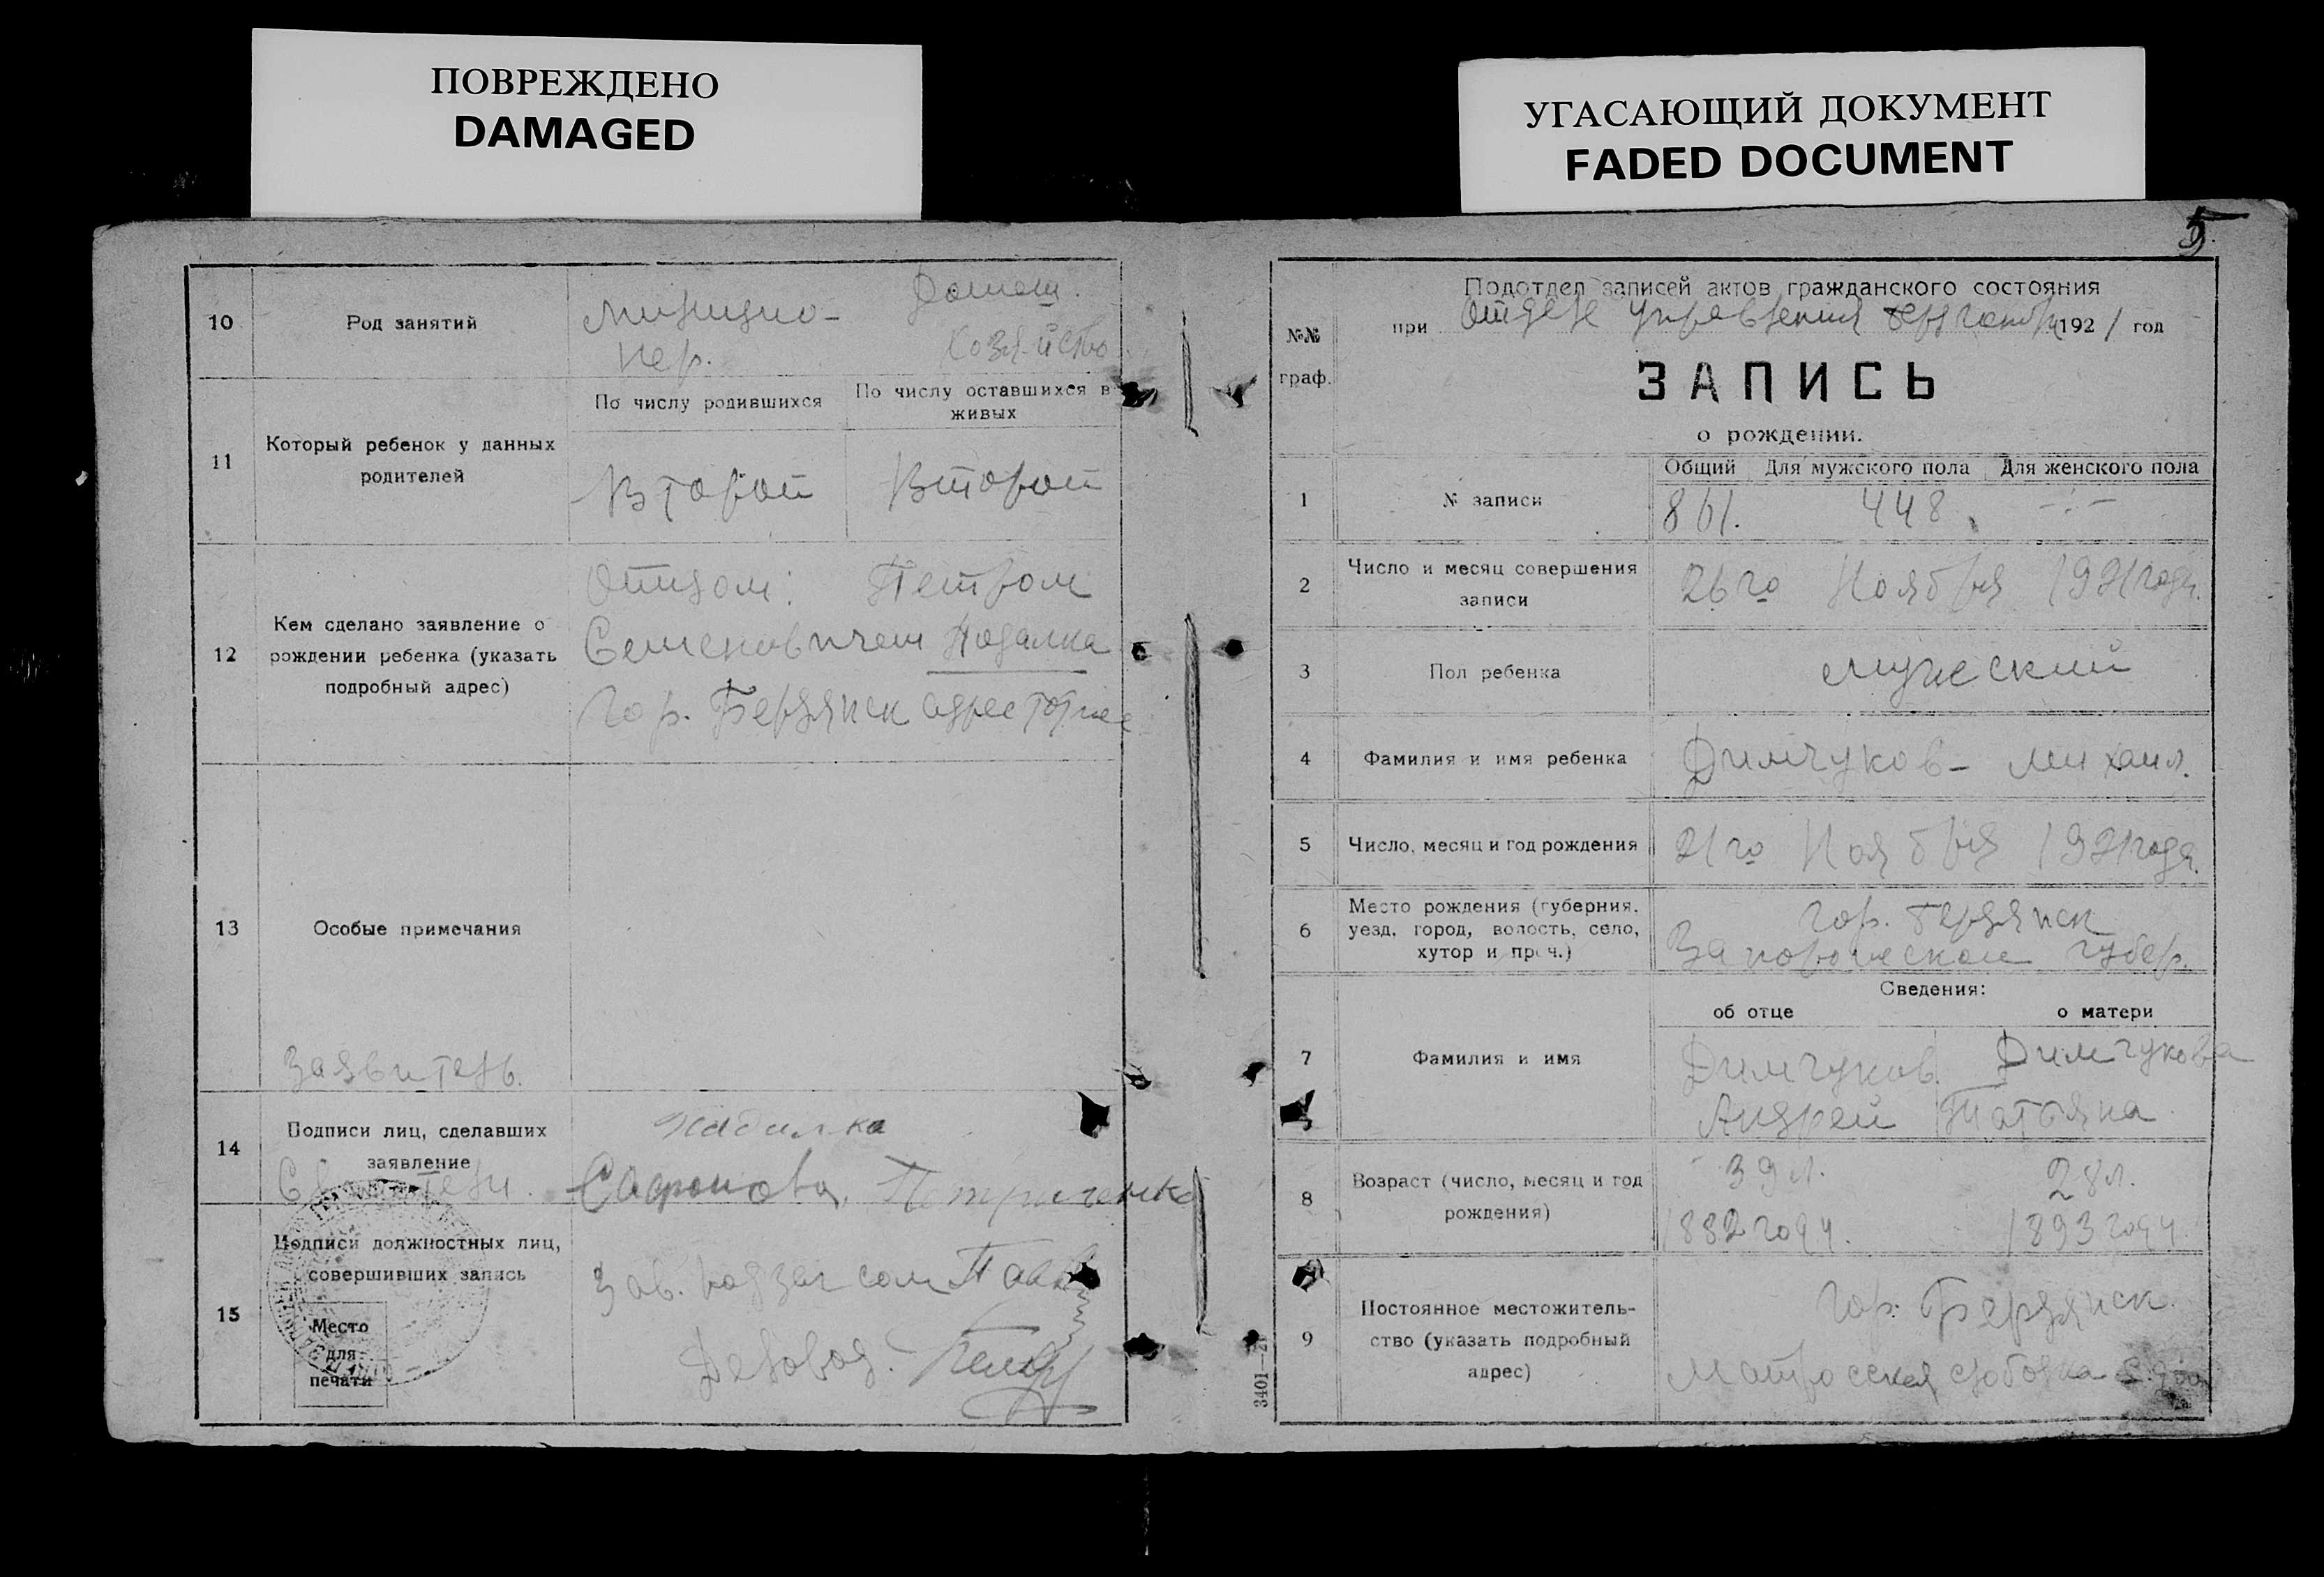 ПОВРЕЖДЕНО
DAMAGED
УГАСАЮЩИЙ ДОКУМЕНТ
FADED DOCUMENT
10
Род занятий
Милицио-
нер.
Домаш.
хозяйство
11
Который ребенок у данных
родителей
По числу родившихся
По числу оставшихся в
живых
Второй
Второй
12
Кем сделано заявление о
рождении ребенка (указать
подробный адрес)
Отцом: Петром
Семеновичем
Гор. Бердянск адрес тот же
13
Особые примечания
Заявитель.
14
Подписи лиц, сделавших
заявление
Сафонова, Петриченко
15
Подписи должностных лиц,
совершивших запись
Место
для
печати
Зав. подзагсом
Деловод.
5
№№
граф.
Подотдел записей актов гражданского состояния
при Отделе Управления 1921 год
ЗАПИСЬ
о рождении.
1
№ записи
Общий Для мужского пола Для женского пола
861. 448. -:-
2
Число и месяц совершения
записи
26го Ноября 1921 года.
3
Пол ребенка
мужеский
4
Фамилия и имя ребенка
Димчуков - Михаил.
5
Число, месяц и год рождения
21го Ноября 1921 года.
6
Место рождения (губерния,
уезд, город, волость, село,
хутор и проч.)
Гор. Бердянск
Запорожской губер.
Сведения:
об отце о матери
7
Фамилия и имя
Димчуков Димчукова
Андрей Татьяна
8
Возраст (число, месяц и год
рождения)
39 л. 28 л.
1882 году. 1893 году.
9
Постоянное местожитель-
ство (указать подробный
адрес)
Гор. Бердянск
Матросская слободка
3401—21